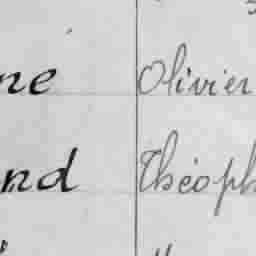 ne Olivier
nd Théoph